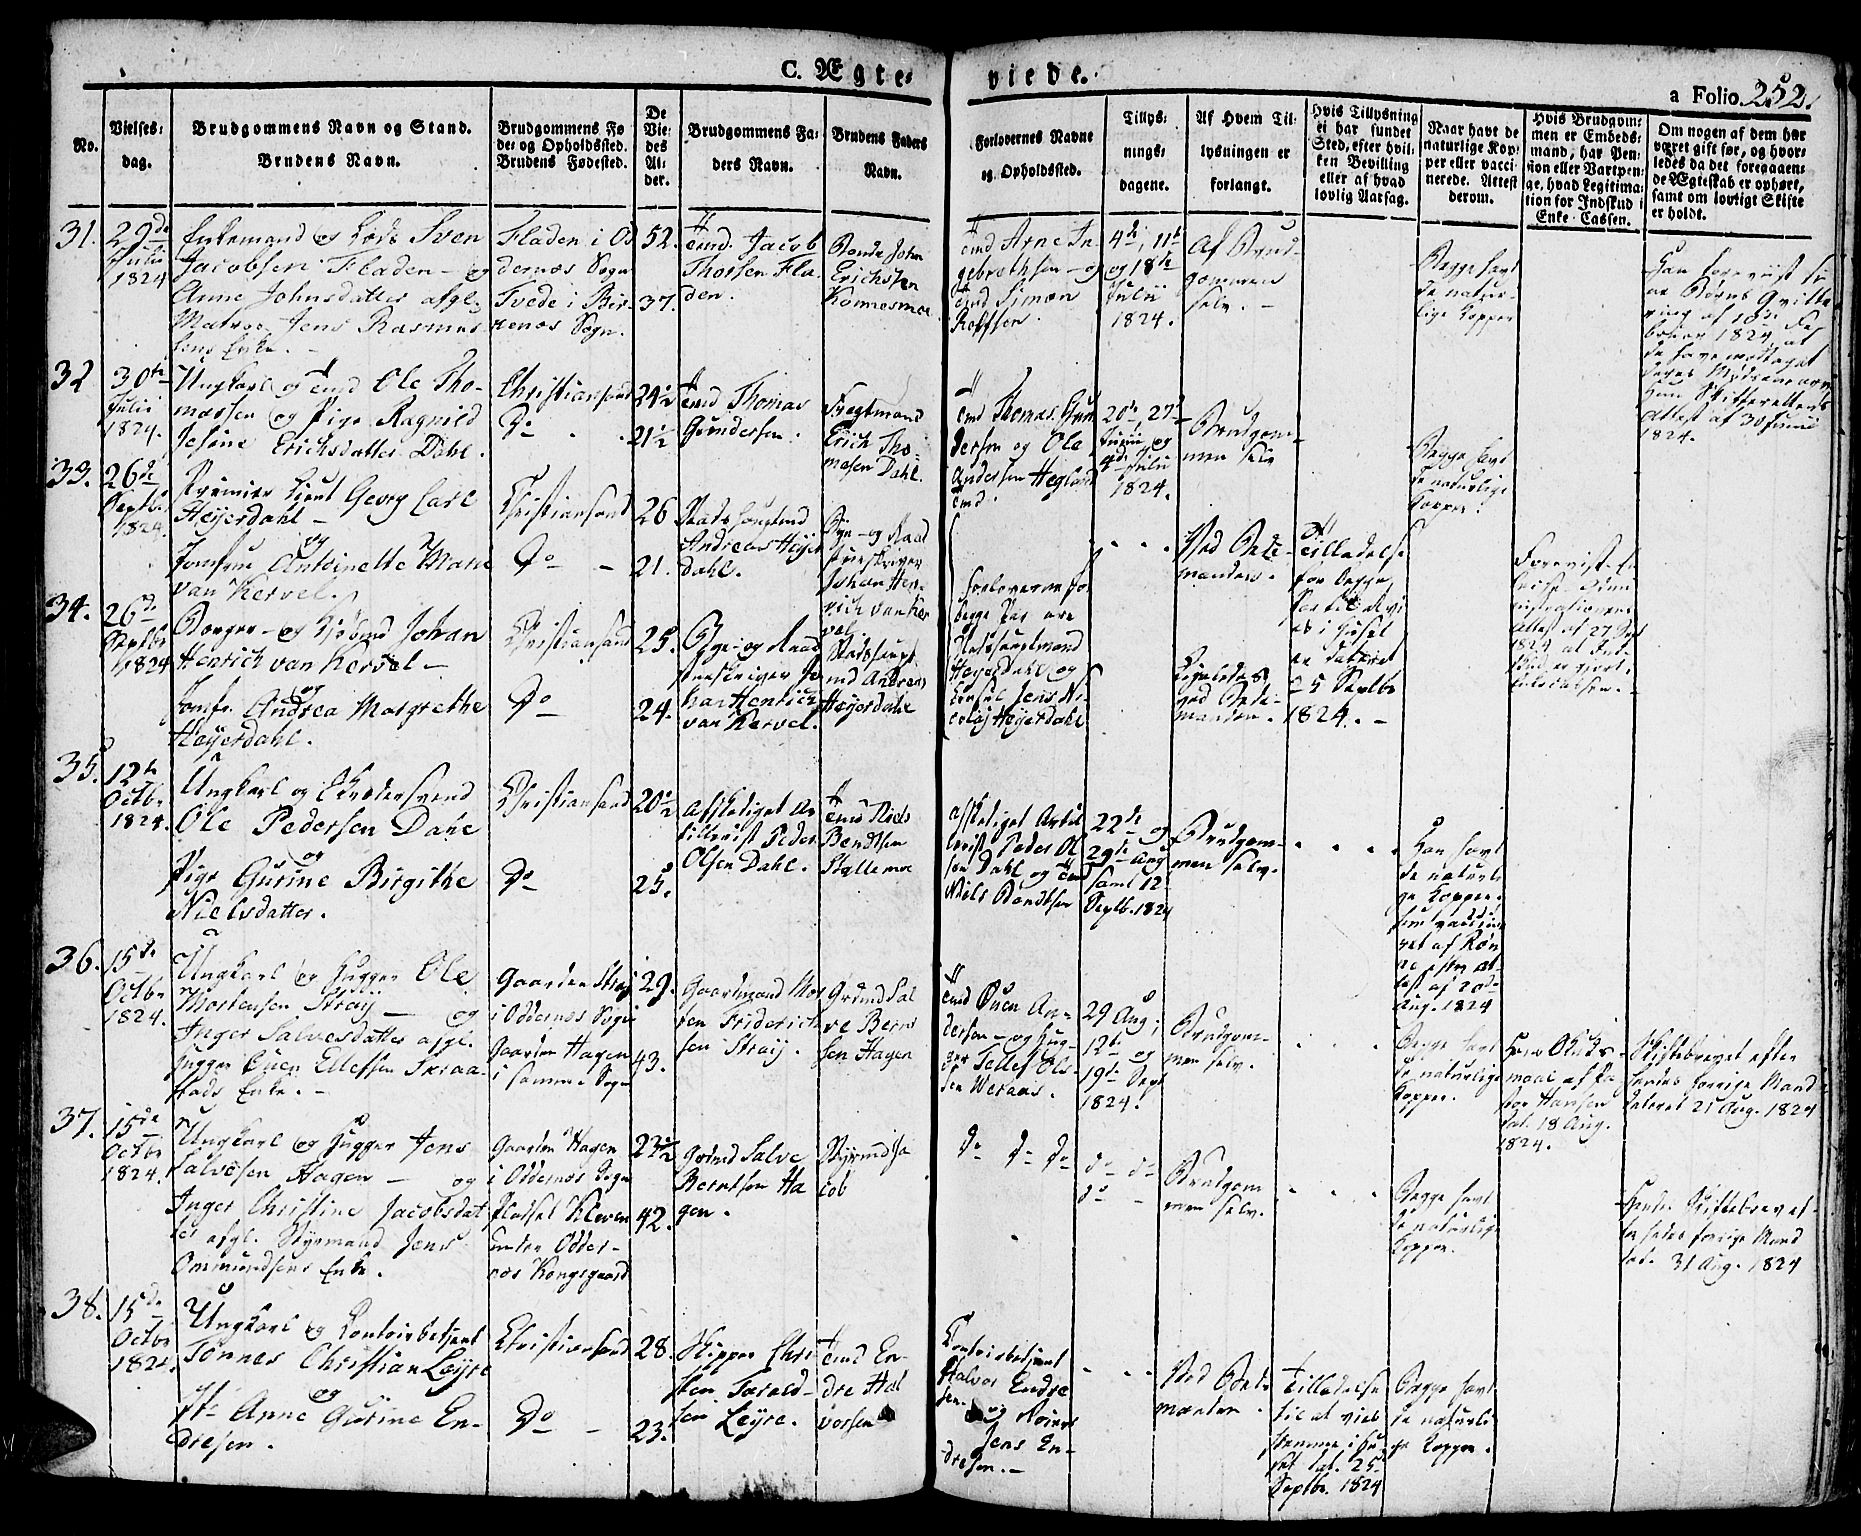 C. Ægte-
viede.
a Folio 252.
No.
Vielses-
dag.
Brudgommens Navn og Stand.
Brudens Navn.
Brudgommens Fø
de- og Opholdssted.
Brudens Fødested.
De
Vie-
des
Al-
der.
Brudgommens Fa-
ders Navn.
Brudens Faders
Navn.
Forlovernes Navne
og Opholdssted.
Tillys-
nings-
dagene.
Af Hvem Til-
lysningen er
forlangt.
Hvis Tillysning
ei har fundet
Sted, efter hvil-
ken Bevilling
eller af hvad
lovlig Aarsag.
Naar havt de
naturlige Kop-
per eller vacci-
nerede. Attest
derom.
Hvis Brudgom-
men er Embeds-
mand, har Pen-
sion eller Vartpen-
ge, hvad Legitima-
tion for Indskud i
Enke-Cassen.
Om nogen af dem har
været gift før, og hvor-
ledes da det foregaaen-
de Ægteskab er ophørt,
samt om lovligt Skifte
er holdt.
31.
29de
Julii
1824
Enkemand og Lods Sven
Jacobsen Fladen - og
Anne Johnsdatter afgl.
Matros Jens Rasmus
sens Enke. -
Fladen i Od
dernæs Sogn
Tvede i Bir-
kenæs Sogn.
52.
37.
Tmd. Jacob
Thorsen Fla-
den.
Bonde John
Erichsen
Tmd Arne In
gebrethsen - og
Tmd Simon
Rolfsen.
4de, 11te
og 18de
Julii
1824.
Af Brud-
gommen
selv. -
Begge havt
de natur-
lige Kopper
Han foreviist si-
ne Børns Qvitte
ring af
1824, at
de have modtaget
deres Mødrenearv
Hun Skifterettens
Attest af 30 Junii
1824.
32
30te
Julii
1824.
Ungkarl og Tmd Ole Tho-
massen og Pige Ragnild
Josine Erichsdatter Dahl.
Christiansand
Do
24½
21½
Tmd Thomas
Gundersen.
Fragtmand
Erich Tho-
masen Dahl.
Tmd Thomas Gun
dersen og Ole
Andersen Hegland
Tmd.
20de, 27de
Junii og
4de Julii
1824.
Brudgom-
men selv
Begge havt
de naturlige
Kopper.
33.
26de
Septbr
1824.
Premier Lieut Georg Carl
Heyerdahl -
og
Jomfru Antoinette Marie
van Kervel.
Christiansand
Do -
26
21.
Stadshauptmd
Andreas Heyer
dahl.
Bye- og Raad
stueskriver
Johan Hen-
rich van Ker
vel
Forloverne for
begge Par ere
Stadshauptmand
Heyerdahl og
Consul Jens Ni-
colaj Heyerdahl
Ved Bede-
manden.
Tilladelse
for begge
Par til at vi
es i Huset
er dateret
25 Septbr
1824. -
34.
26de
Septbr
1824
Borger- og Kjøbmd Johan
Henrich van Kervel -
og
Jomfr. Andrea Margrethe
Heyerdahl.
Christiansand
Do
25.
24.
Bye- og Raad
stueskriver Jo
han Henrich
van Kervel.
Stadshaupt
md Andreas
Heyerdahl
Ligeledes
ved Bede-
manden.
35.
12te
Octbr
1824.
Ungkarl og Skrædersvend
Ole Pedersen Dahl
og
Pige Gurine Birgithe
Nielsdatter.
Christiansand
Do
20½
25.
Afskediget Ar
tillerist Peder
Olsen Dahl.
Tmd Niels
Bendtsen
Stallemoe
Afskediget Artil
lerist Peder Ol
sen Dahl og Tmd
Niels Bendtsen
22de og
29de Aug
samt 12
Septb. 1824
Brudgom-
men selv.
Han havt
de naturli
ge Kopper.
Hun vaccine
ret af
efter At-
test af 20de
Aug. 1824
36.
15de
Octbr
1824.
Ungkarl og Hugger Ole
Mortensen Straij - og
Inger Salvesdatter afgl.
Hugger Ouen Ellefsen Skraa-
stads Enke. -
Gaarden Straij
i Oddernæs Sogn
Gaarden Hagen
i samme Sogn
29.
43.
Gaardmand Mor
ten Friderich
sen Straij.
Grdmd Sal
ve Bernt
sen Hagen
Tmd Ouen An-
dersen - og Hug-
ger Tellef Ols-
sen Weraas.
29 Aug;
12te og
19de Sept
1824.
Brudgom-
men selv.
Begge havt
de naturlige
Kopper.
dat. 18 Aug.
1824.
Skiftebrevet efter
hendes forrige Mand
dateret 21 Aug. 1824
37.
15de
Octbr
1824.
Ungkarl og Hugger Jens
Salvesen Hagen - og
Inger Christine Jacobsdat
ter afgl. Styrmand Jens
Ommundsens Enke.
Gaarden Hagen
i Oddernæs Sogn
Pladset Kleven
under Odder-
næs Kongsgaard
23½
42.
Grdmd Salve
Berntsen Ha
gen.
Styrmd Ja
cob
do do do
do do
do -
Brudgom
men selv.
Begge havt
de naturlige
Kopper.
Hendes Skiftebrevet
hendes forrige Mand
dat. 31 Aug. 1824
38.
15de
Octbr
1824.
Ungkarl og Contoirbetjent
Tønnes Christian Leyre
og
Anne Gurine En-
dresen.
Christiansand
Do -
28.
23.
Skipper Chri-
sten Tarald-
sen Leyre.
Tmd En-
dre Hal
vorsen
Contoirbetjent
Halvor Endre
sen.
og
Jens En-
dresen. -
Ved Bede-
manden.
Tilladelse
til at vies
hjemme i Hu-
set dat. 25de
Septbr. 1824
Begge havt
de naturli-
ge Kopper.